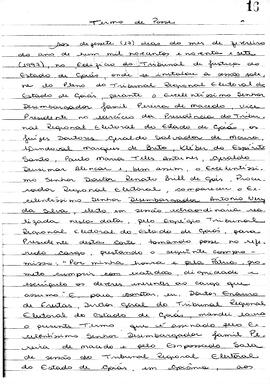 16
Termo de Posse
Aos dezessete (17) dias do mês de fevereiro
do ano de um mil novecentos e noventa e sete
(1997), no Edifício do Tribunal de Justiça do
Estado de Goiás, onde se
do Pleno do Tribunal Regional Eleitoral do
Estado de Goiás, presente o Excelentíssimo Senhor
Desembargador Jamil Pereira de Macedo, Vice
Presidente no exercício da Presidência do Tribu-
nal Regional Eleitoral do Estado de Goiás, os
juízes Doutores Geraldo Salvador de Moura,
Marques de Brito, Kleber do Espírito
Santo, Maria Telles Antunes, Geraldo
Alencar e, bem assim, o Excelentíssi-
mo Senhor Doutor Renato Brill de Góis, Procu-
rador Regional Eleitoral, compareceu o Ex-
celentíssimo Senhor Desembargador Antonio Nery
da Silva, eleito em sessão extraordinária rea-
lizada nesta data, pelo Egrégio Tribunal
Regional Eleitoral do Estado de Goiás, para
Presidente desta Corte, tomando posse no refe-
rido cargo, prestando o seguinte compro-
misso: "Por minha honra e pela Pátria, pro-
meto cumprir com exatidão, dignidade e
escrúpulo os deveres inerentes ao cargo que
assumo". E para constar, eu, Doutor
de Freitas, Diretor Geral do Tribunal Regional
Eleitoral do Estado de Goiás, mandei lavrar
o presente Termo que é assinado pelo Ex-
celentíssimo Senhor Desembargador Jamil Pe-
reira de Macedo e pelo Empossado. Sala
de sessão do Tribunal Regional Eleitoral
do Estado de Goiás, em Goiânia, aos